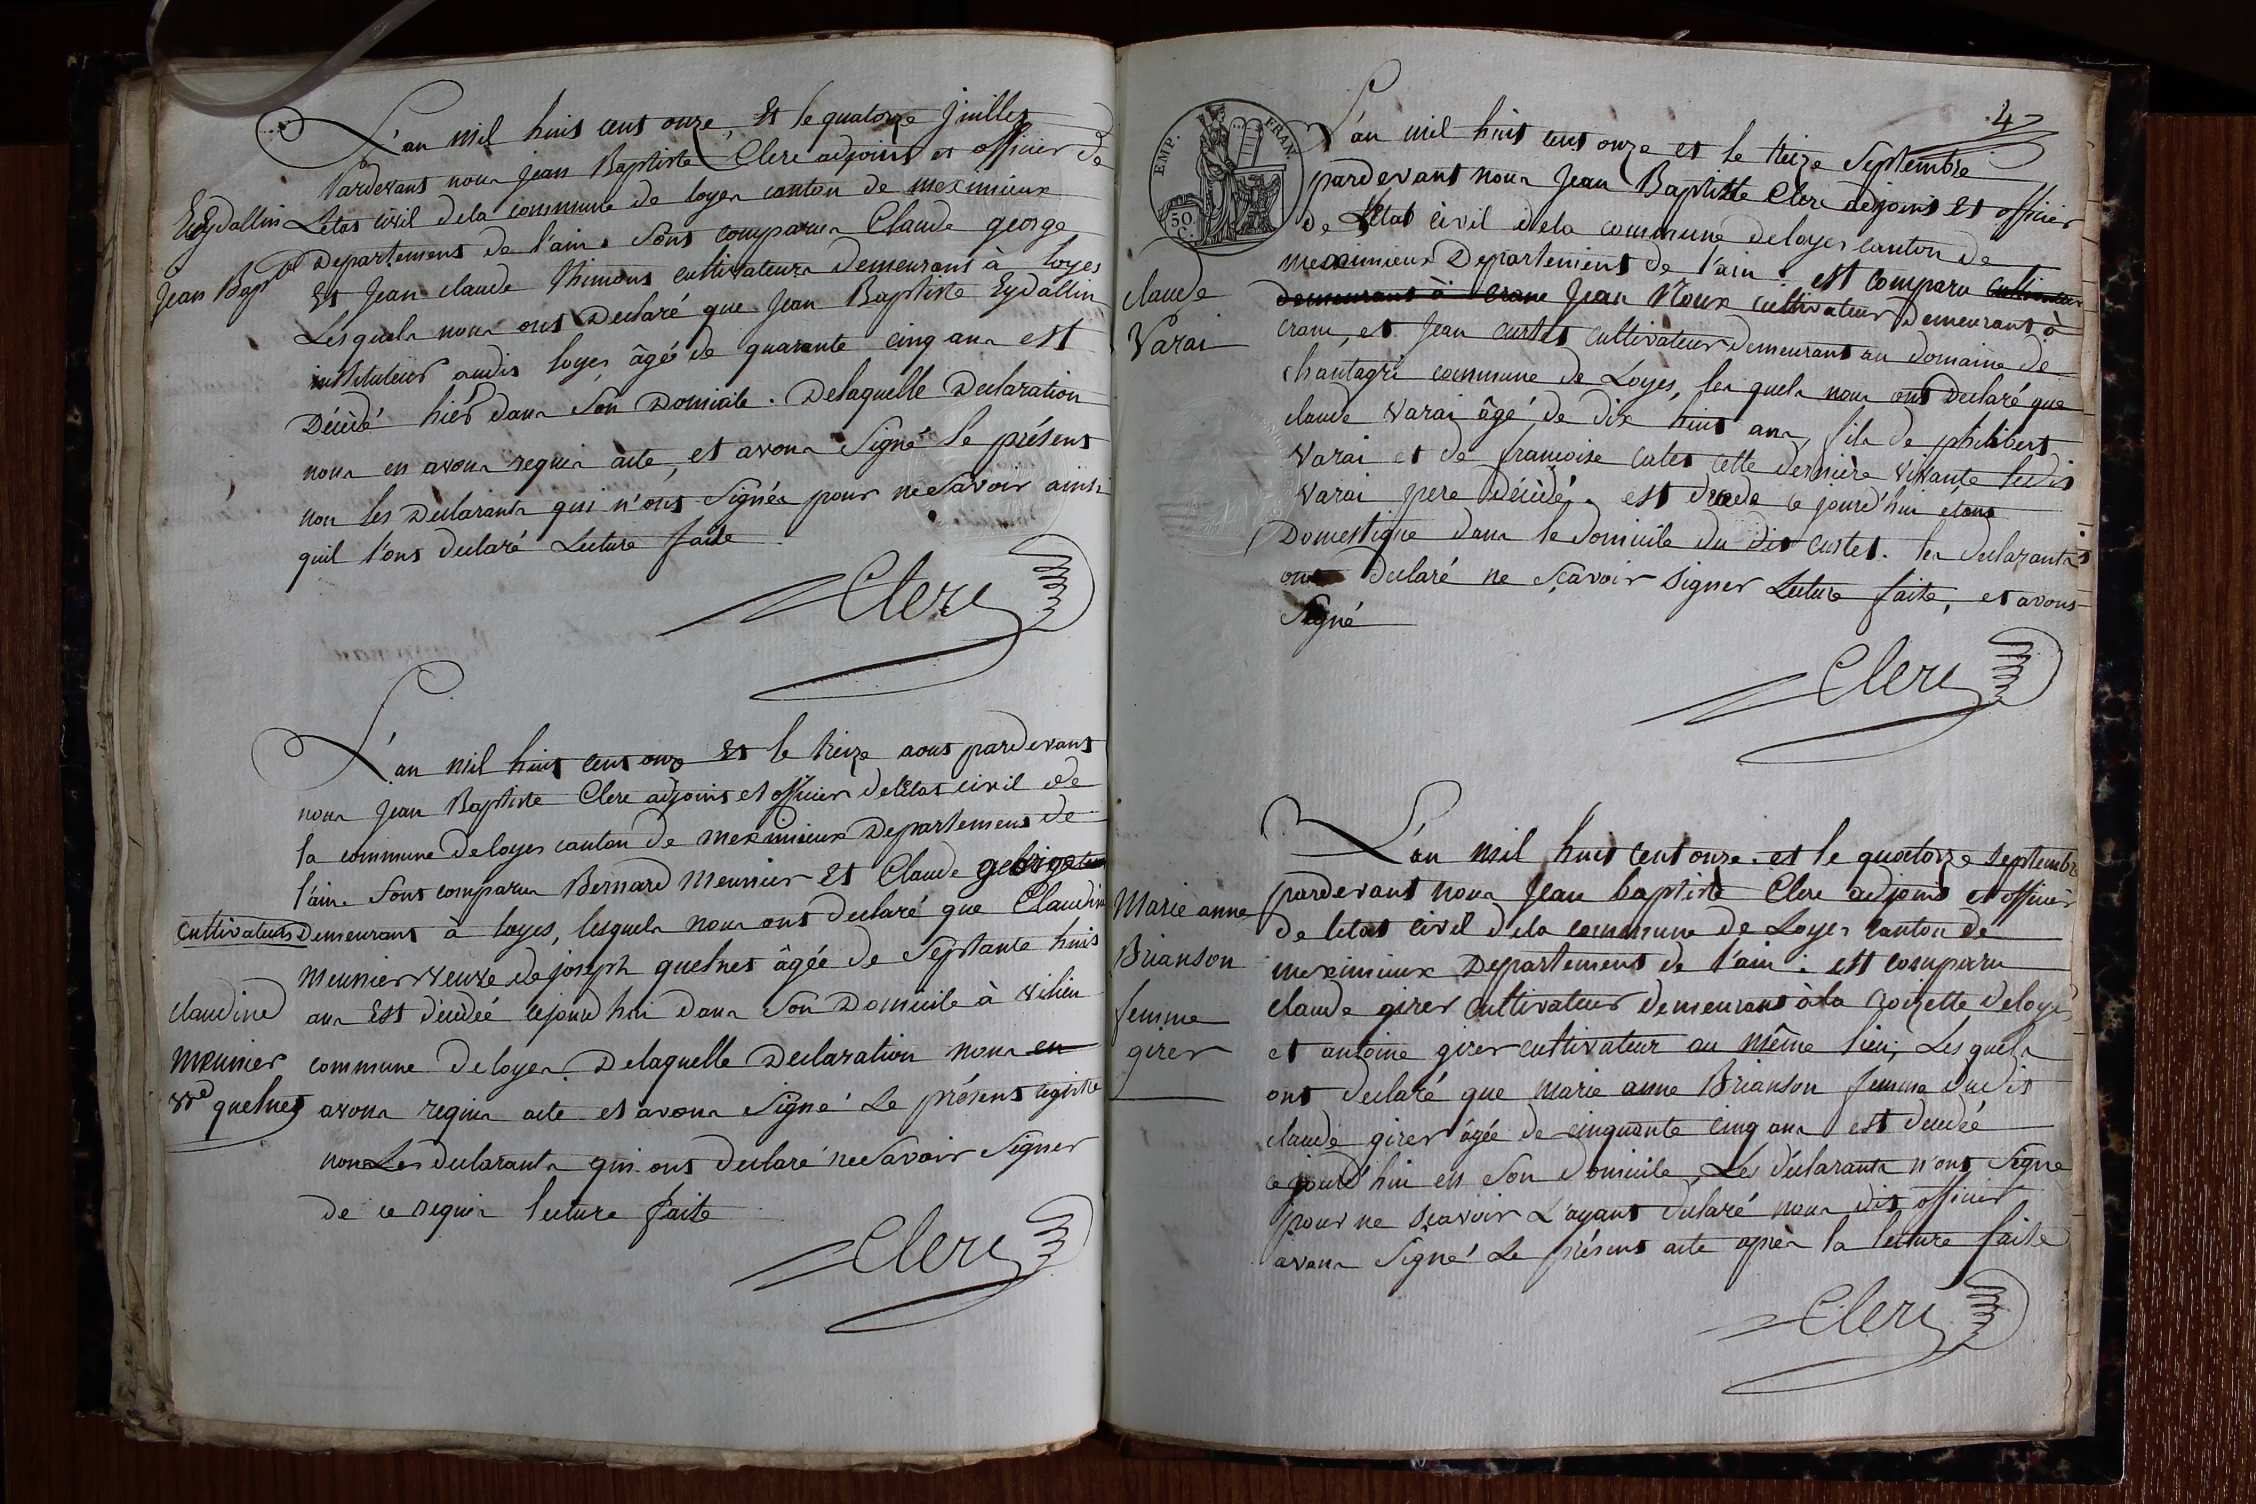 L'an mil huit cent onze, Et le quatorze juillet
Pardevant nous jean Baptiste Clerc adjoint et officier de
Eydallin
Jean Bapte
Létat civil dela commune de loyes canton de meximieux
Departement de l'ain. Sont comparus Claude george
Et Jean claude Thimont cultivateurs demeurant à loyes
Lesquels nous ont Declaré que Jean Baptiste Eydallin
instituteur audit loyes, âgé de quarante cinq ans est
Décédé hier dans Son Domicile. Delaquelle Declaration
nous en avons requis acte, et avons Signé le présent
non les Declarants qui n'ont Signés pour ne Savoir ainsi
quil l'ont declaré Lecture faite
Clerc
L'an mil huit cent onze Et le treize aout pardevant
nous Jean Baptiste Clerc adjoint et officier deletat civil de
la commune de loyes canton de meximieux Departement de
l'ain. Sont comparus Bernard meunier Et Claude george
cultivateurs Demeurant à loyes, lesquels nous ont declaré que Claudine
meunier veuve de joseph quelnet âgée de Septante huit
claudine
meunier
vve quelnet
ans Est décédée cejourd'hui dans Son Domicile à vilieu
commune de loyes. Delaquelle Declaration nous en
avons requis acte et avons Signé Le présent registre
non Les declarants qui ont declaré ne Savoir Signer
de ce requis lecture faite
Clerc
4
EMP. FRAN.
50 C.
L'an mil huit cent onze et le treize Septembre
pardevant nous Jean Baptiste Clerc adjoint et officier
de L'état civil dela commune de loyes canton de
meximieux Departement de l'ain. est comparu cultivateur
claude
Varai
demeurant à crane Jean Roux cultivateur Demeurant à
crane, et Jean curtet cultivateur demeurant au domaine de
chantagri commune de Loyes, les quels nous ont Declaré que
claude varai âgé de dix huit ans, fils de philibert
varai et de francoise cales cette dernière vivante ledit
varai pere décédé. est décédé ce jourd'hui étant
Domestique dans le domicile du dit curtet. les declarants
ont declaré ne Sçavoir signer Lecture faite, et avons
Signé
Clerc
L'an mil huit cent onze. et le quatorze septembre
pardevant nous Jean baptiste Clerc adjoint et officier
de letat civil dela commune de Loyes canton de
meximieux Departement de l'ain. est comparu
Marie anne
Brianson
femme
girer
claude girer cultivateur demeurant à la croizette deloyes
et antoine girer cultivateur au même lieu, Les quels
ont declaré que marie anne Brianson femme dudit
claude girer âgée de cinquante cinq ans est décédée
ce jourd'hui en Son domicile, Les déclarants n'ont Signe
pour ne scavoir L'ayant declaré nous dit officier
avons Signé Le présent acte après la lecture faite
Clerc